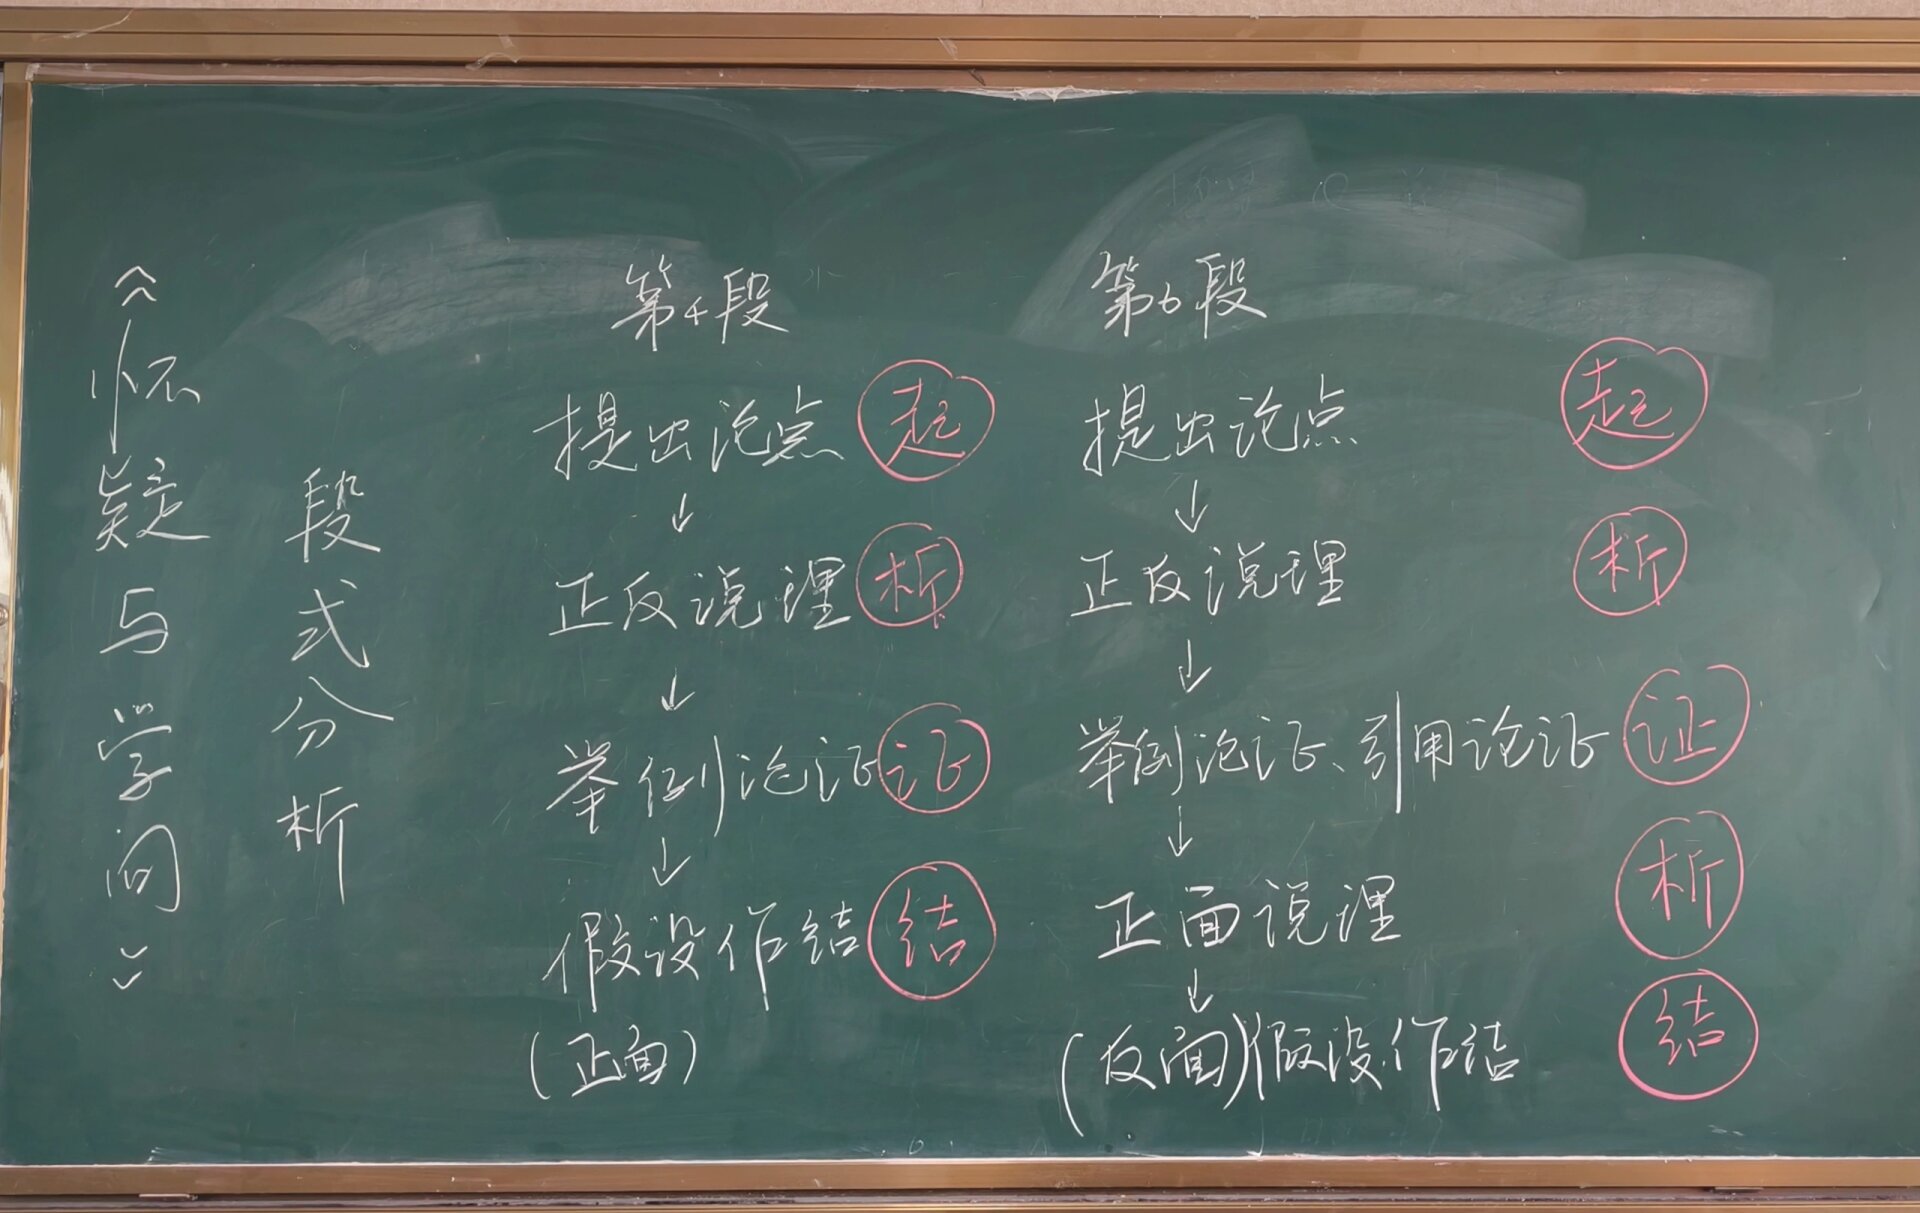 《怀疑与学问》
段式分析
第4段
提出论点 起
↓
正反说理 析
↓
举例论证 证
↓
假设作结 结
(正面)
第6段
提出论点 起
↓
正反说理 析
↓
举例论证、引用论证 证
↓
正面说理 析
↓
(反面)假设作结 结